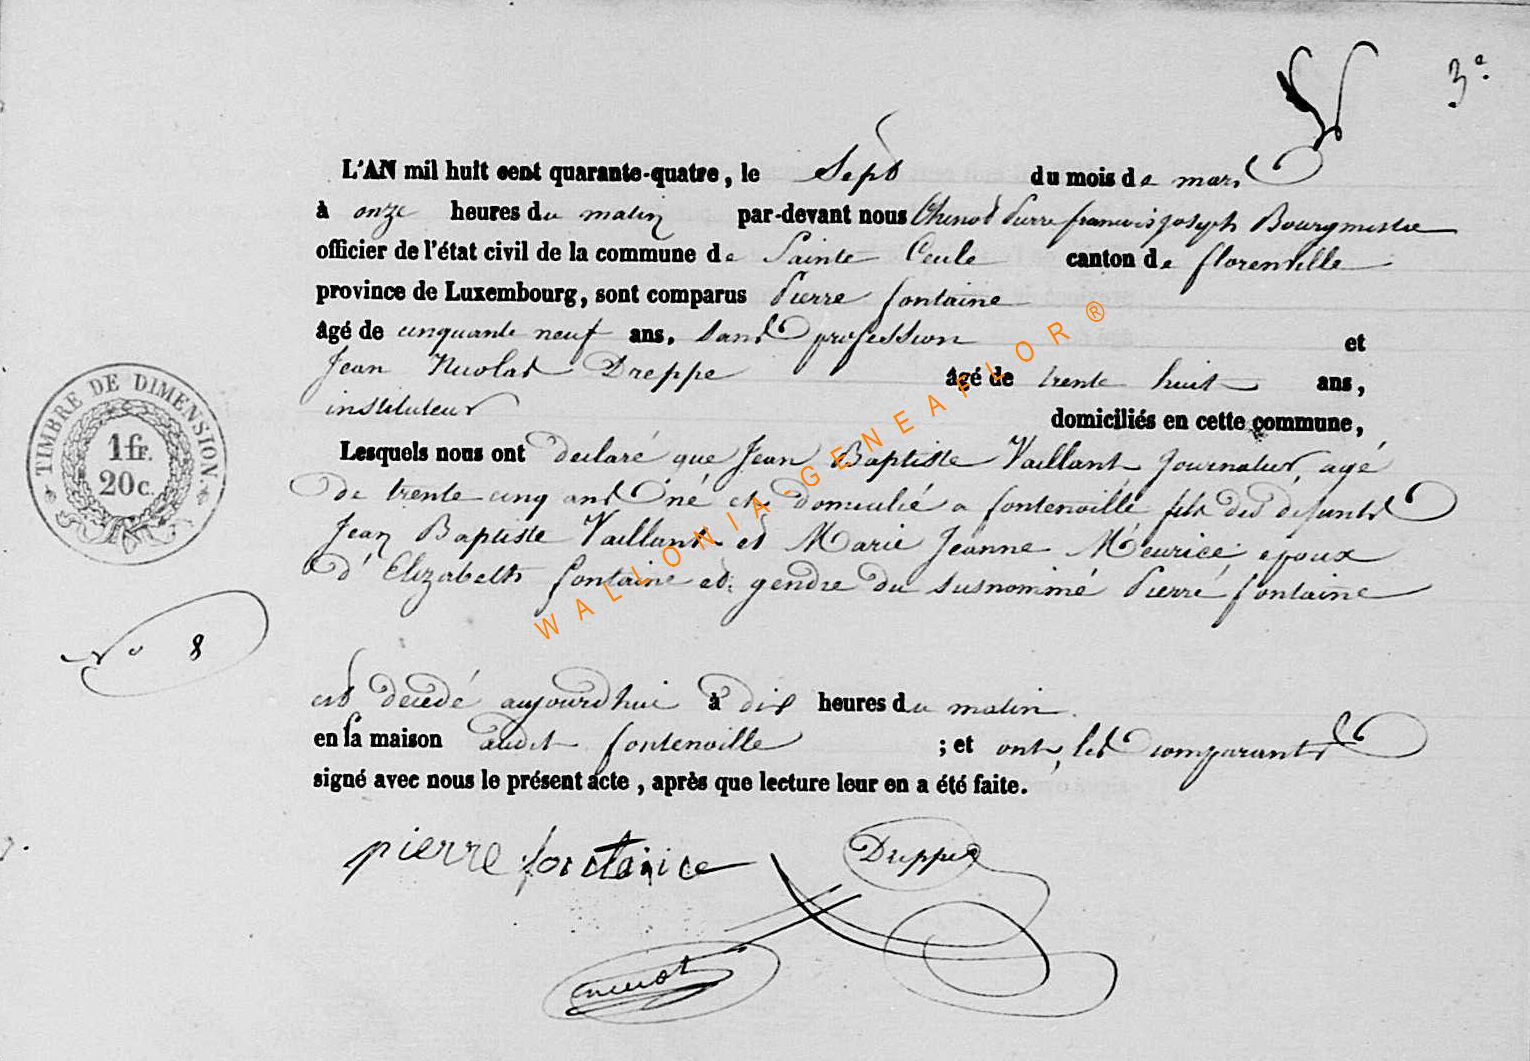 3e.
L'AN mil huit cent quarante-quatre, le Sept du mois de mars
à onze heures du matin par-devant nous Chenot Pierre francois joseph Bourgmestre
officier de l'état civil de la commune de Sainte Cecile canton de florenville
province de Luxembourg, sont comparus Pierre fontaine
âgé de cinquante neuf ans, sans profession et
Jean Nicolas Dreppe âgé de trente huit ans,
instituteur domiciliés en cette commune,
Lesquels nous ont declaré que Jean Baptiste Vaillant Journalier agé
de trente cinq ans né et domicilié a fontenoille fils des défunts
Jean Baptiste Vaillant et Marie Jeanne Meurice epoux
d'Elizabeth fontaine et gendre du susnommé Pierre fontaine
TIMBRE DE DIMENSION.
1 fr.
20 c.
No 8
est decedé aujourdhui à dix heures du matin
en sa maison audit fontenoille ; et ont, les comparants
signé avec nous le présent acte, après que lecture leur en a été faite.
pierre fontaine Dreppe
Chenot
WALLONIA-GENEAFLOR®